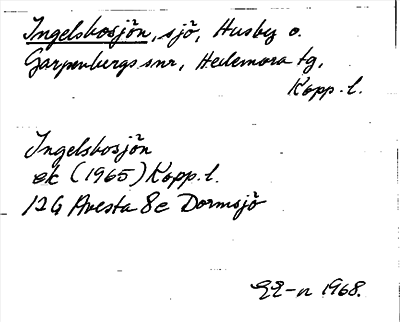 Ingelsbosjön, sjö, Husby o.
Garpenbergs snr, Hedemora tg,
Kopp. l.
Ingelsbosjön
ek (1965) Kopp. l.
12G Avesta 8e Dormsjö
1968.